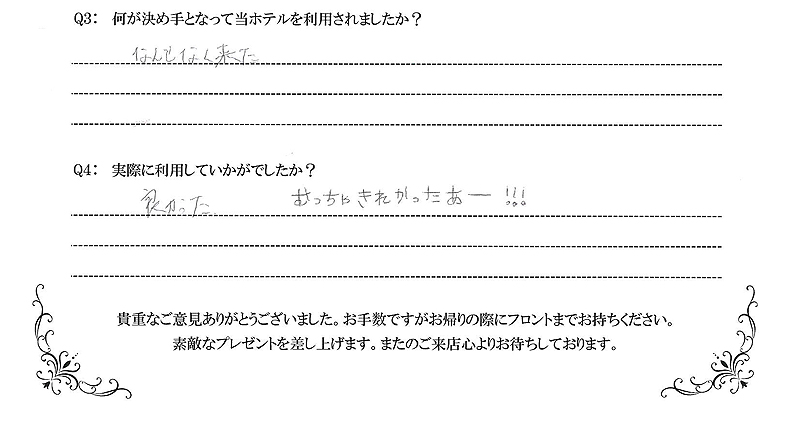 Q3： 何が決め手となって当ホテルを利用されましたか？
なんとなく来た
Q4： 実際に利用していかがでしたか？
良かった むっちゃきれかったあー!!!
貴重なご意見ありがとうございました。お手数ですがお帰りの際にフロントまでお持ちください。
素敵なプレゼントを差し上げます。またのご来店心よりお待ちしております。